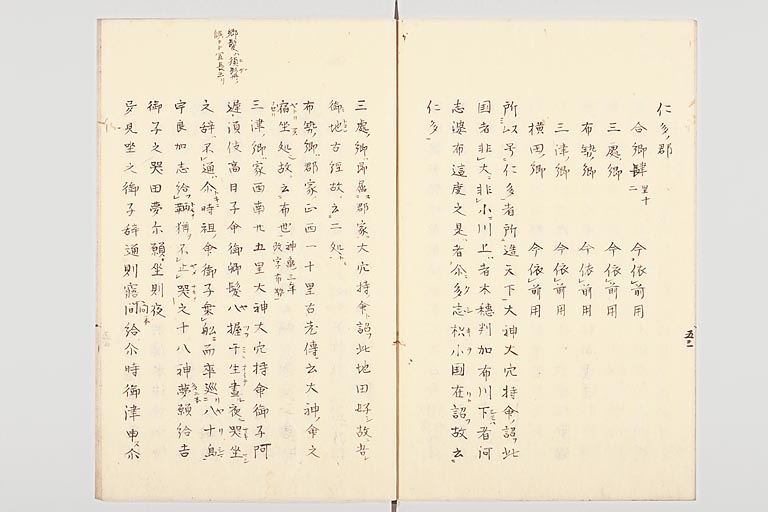 仁多ノ郡
合郷肆 里十二
三處ノ郷 今依前用
布勢ノ郷 今依前用
三津ノ郷 今依前用
横田ノ郷 今依前用
所以号仁多者所造天下大神大穴持命詔此
国者非大非小川上者木穂判加布川下者河
志婆布這度之是者尒多志枳小国在詔故云
仁多
三處ノ郷即属郡家大穴持命詔此地田好故吾
御地古経故云二処
布勢ノ郷郡家正西一十里古老傳云大神命之
宿坐処故云布世 神亀三年改字布勢
三津ノ郷郡家西南廿五里大神大穴持命御子阿
遅須伎高日子命御郷髪八握于生晝夜哭坐
之辞不通尒時祖命御子乗舩而率巡八十島
宇良加志給鞆猶不止哭之十八神夢願給告
御子之哭田夢尒願坐則夜
夛見坐之御子辞通則寤問給尒時御津申尒